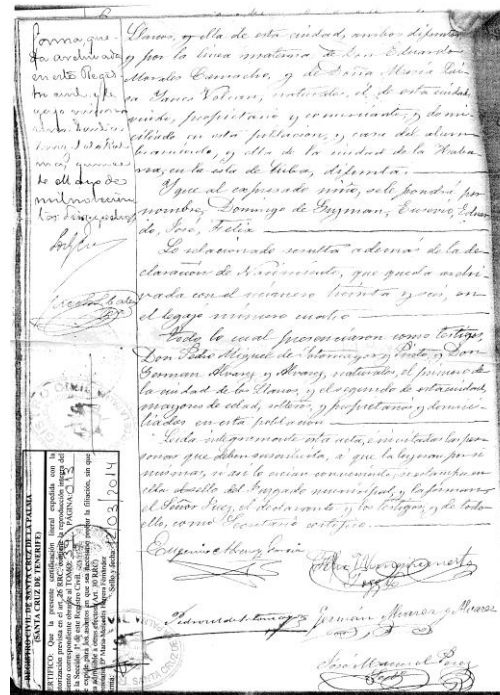 forma que-
da archivada
en este Regis-
tro civil, y le-
gajo número
de Mayo de
mil novecien-
Llanos, y ella de esta ciudad, ambos difuntos
y por la línea materna de Don Eduardo
Morales Camacho, y de Doña María Lui-
sa Yanes Volcan, naturales, el de esta ciudad,
viudo, propietario y comerciante, y domi-
ciliado en esta población, y casa del alum-
bramiento, y ella de la ciudad de la Haba-
na, en la isla de Cuba, difunta.
Y que al expresado niño, se le pondrá por
nombre, Domingo de Guzman, Eusevio, Eduar-
do, José, Felix
Lo relacionado resulta además de la de-
claración de Nacimiento, que queda archi-
vada con el número treinta y seis, en
el legajo número cuatro
Todo lo cual presenciaron como testigos,
Don Pedro Miguel de Sotomayor y Pinto, y Don
German Alvarez y Alvarez, naturales, el primero de
la ciudad de los Llanos, y el segundo de esta ciudad,
mayores de edad, solteros, y propietarios y domici-
liados en esta población
Leida integramente esta acta, e invitadas las per-
sonas que deben suscribirla, a que la leyeran por si
mismas, si así lo creian conveniente, se estampó en
ella el sello del Juzgado municipal, y la firmaron
el Señor Juez, el declarante y los testigos, y de todo
ello, como Secretario certifico.
Eugenio Alvarez
Pedro M. de Sotomayor
German Alvarez y Alvarez
José Manuel Perez
REGISTRO CIVIL DE SANTA CRUZ DE LA PALMA
(SANTA CRUZ DE TENERIFE)
CERTIFICO: Que la presente certificación literal expedida con la
autorización prevista en el art. 26 RRC, contiene la reproducción íntegra del
asiento correspondiente obrante al TOMO PÁGINA 013
de la Sección 1ª de este Registro Civil.
Se expide para los asuntos en que sea necesario probar la filiación, sin que
sea admisible a otros efectos (Art. 30 RRC)
Sello y fecha: 12/03/2014